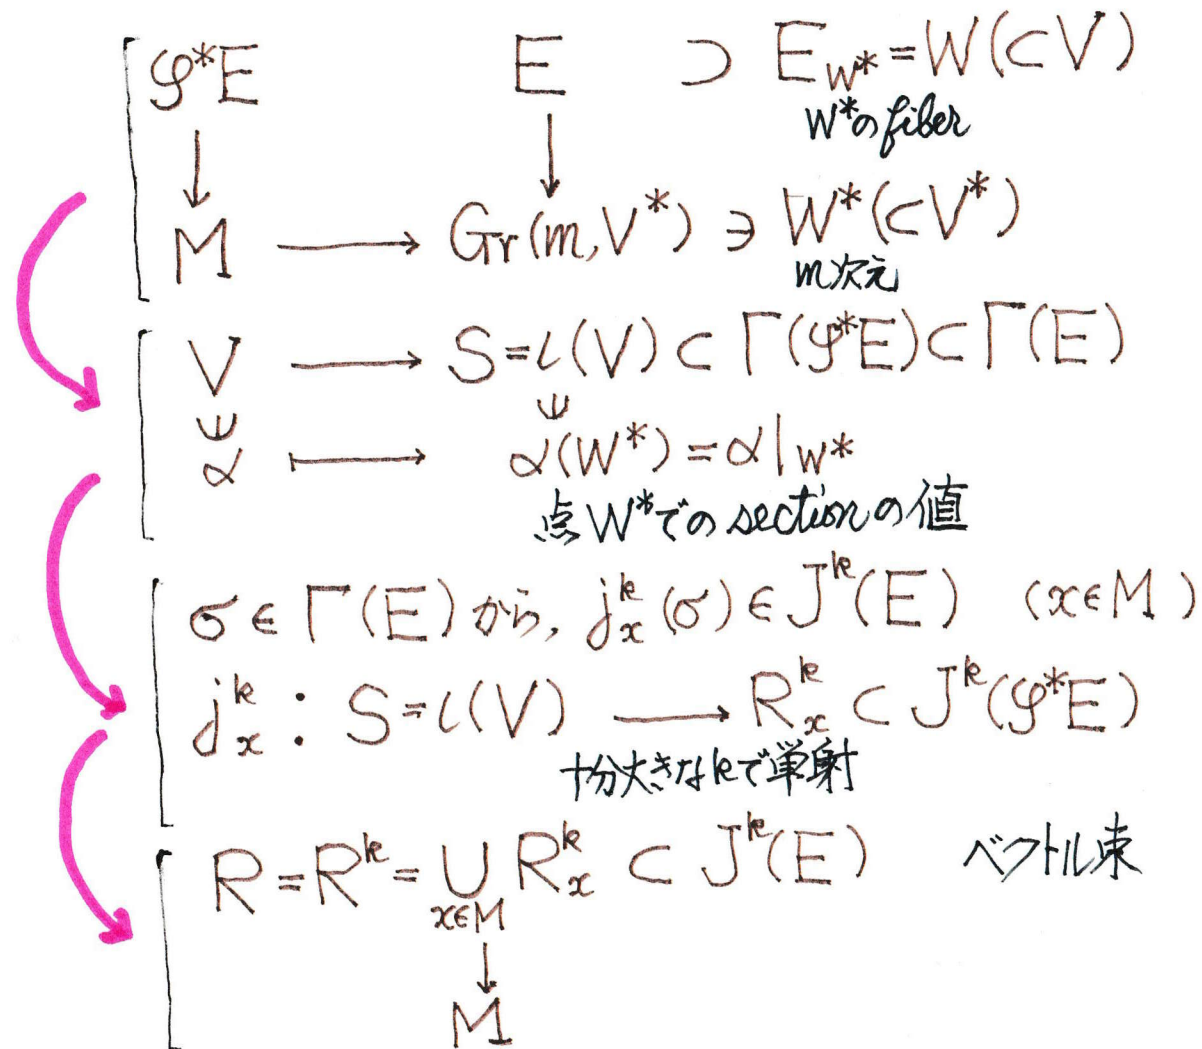 φ*E E ⊃ E_{W*} = W(⊂V)
W*のfiber
↓ ↓
M ⟶ Gr(m,V*) ∋ W*(⊂V*)
m次元
V ⟶ S=ι(V) ⊂ Γ(φ*E) ⊂ Γ(E)
α ⟼ α(W*) = α|_{W*}
点W*でのsectionの値
σ ∈ Γ(E) から, j^k_x(σ) ∈ J^k(E) (x∈M)
j^k_x : S=ι(V) ⟶ R^k_x ⊂ J^k(φ*E)
十分大きなkで単射
R = R^k = ∪_{x∈M} R^k_x ⊂ J^k(E) ベクトル束
↓
M